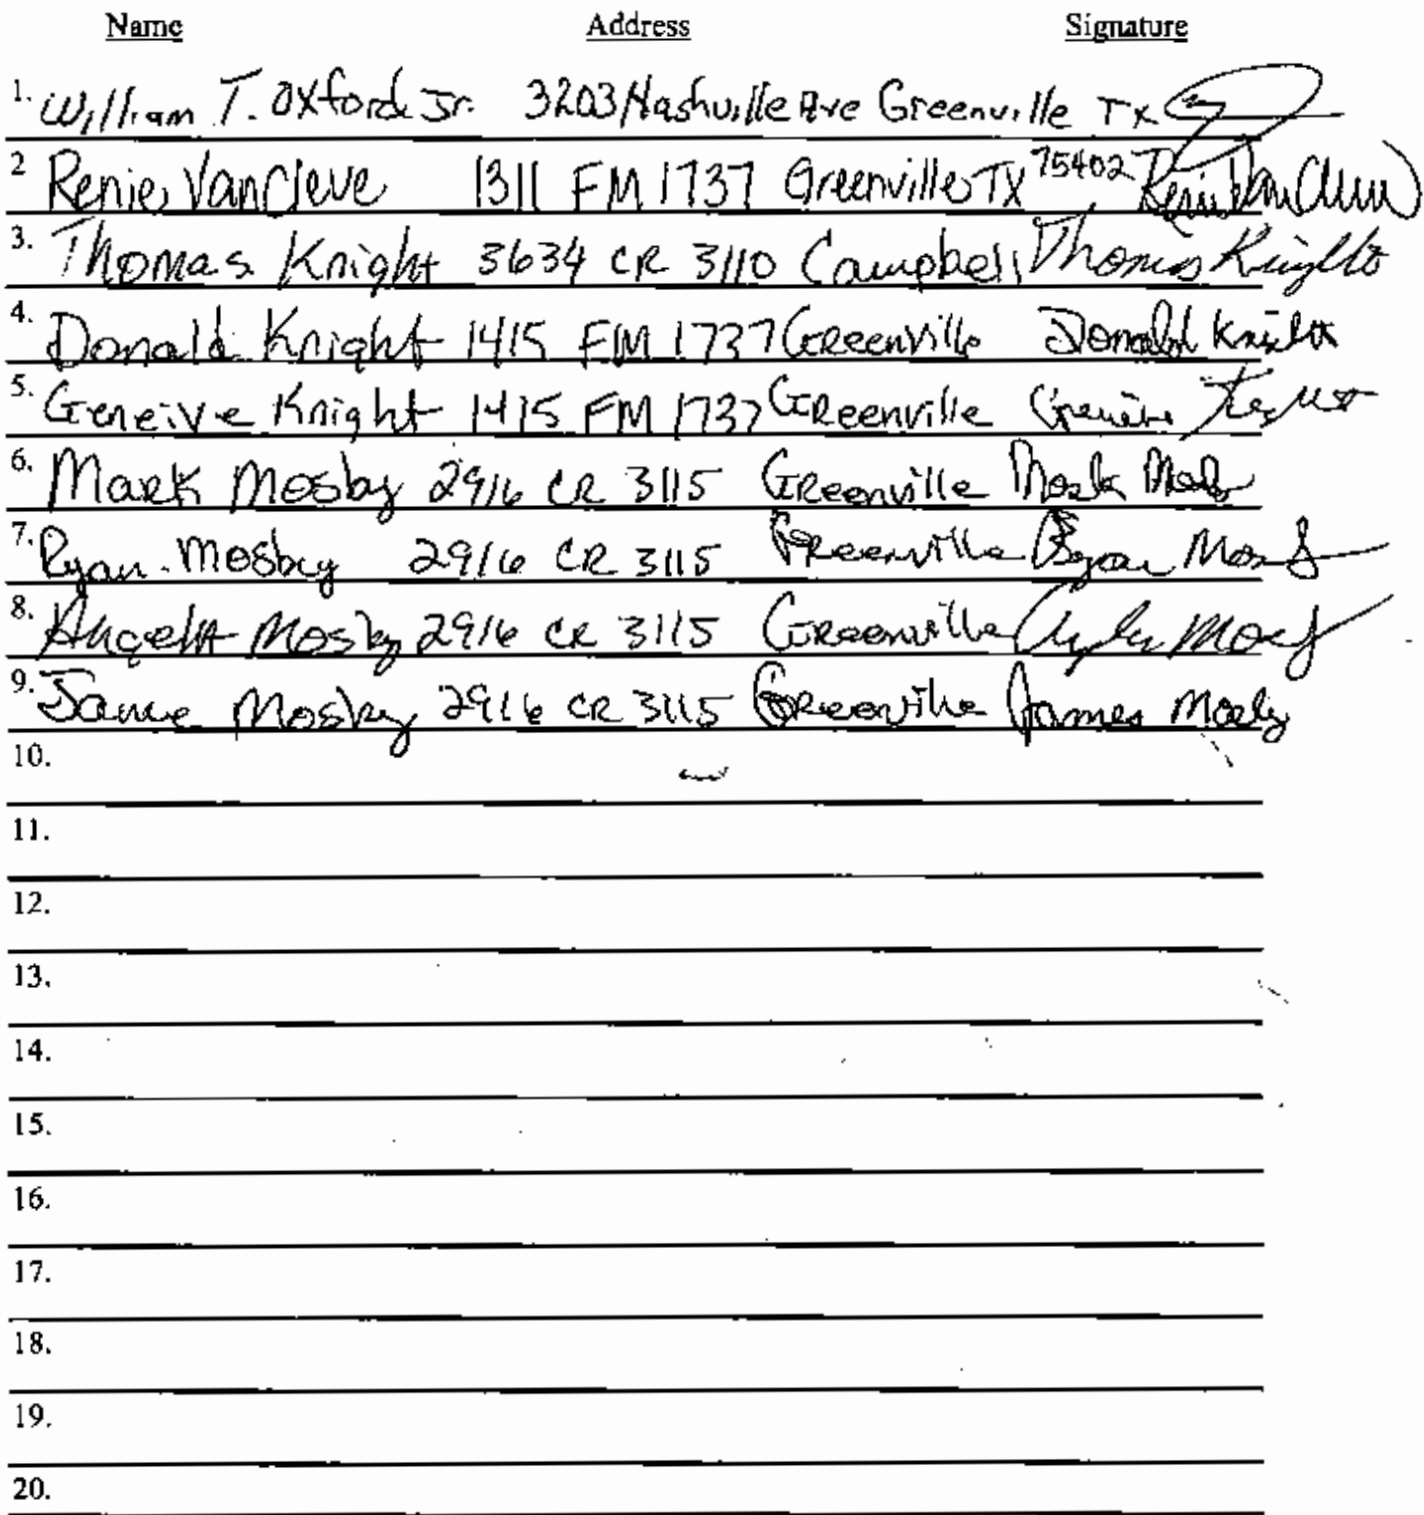 Name Address Signature
1. William T. Oxford Jr. 3203 Nashville Ave Greenville TX
2 Renie VanCleve 1311 FM 1737 Greenville TX 75402 Renie VanCleve
3. Thomas Knight 3634 CR 3110 Campbell Thomas Knight
4. Donald Knight 1415 FM 1737 Greenville Donald Knight
5. Geneive Knight 1415 FM 1737 Greenville Knight
6. Mark Mosby 2916 CR 3115 Greenville Mark
7. Ryan Mosby 2916 CR 3115 Greenville Ryan
8. Angela Mosby 2916 CR 3115 Greenville
9. Mosby 2916 CR 3115 Greenville James Mosby
10.
11.
12.
13.
14.
15.
16.
17.
18.
19.
20.